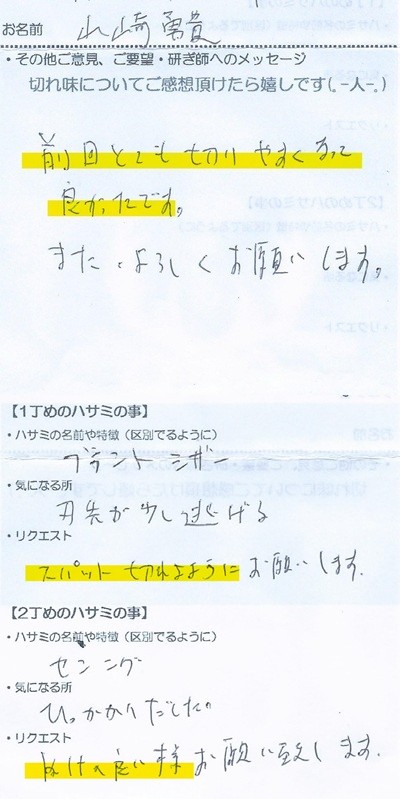 お名前 山崎 勇貴
・その他ご意見、ご要望・研ぎ師へのメッセージ
切れ味についてご感想頂けたら嬉しです(。-人-。)
前回とても切りやすくなって
良かったです。
また、よろしくお願いします。
【1丁めのハサミの事】
・ハサミの名前や特徴(区別でるように)
ブラントシザー
・気になる所
刃先が少し逃げる
・リクエスト
スパット切れるようにお願いします。
【2丁めのハサミの事】
・ハサミの名前や特徴(区別でるように)
センニング
・気になる所
ひっかかりだした。
・リクエスト
ぬけの良い様お願い致します。